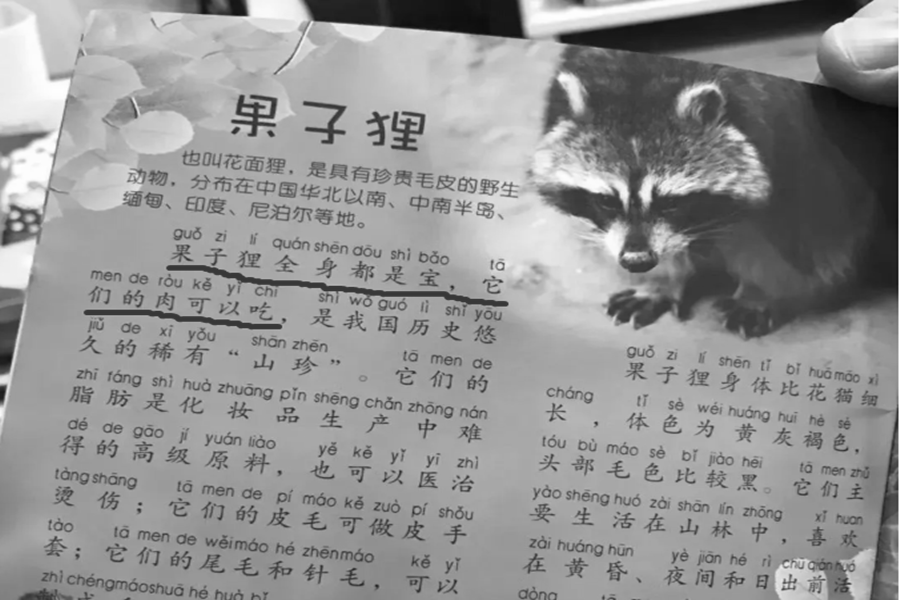 果子狸
也叫花面狸，是具有珍贵毛皮的野生
动物，分布在中国华北以南、中南半岛、
缅甸、印度、尼泊尔等地。
guǒ zi lí quán shēn dōu shì bǎo tā
果子狸全身都是宝，它
men de ròu kě yǐ chī shì wǒ guó lì shǐ yōu
们的肉可以吃，是我国历史悠
jiǔ de xī yǒu shān zhēn tā men de
久的稀有“山珍”。它们的
zhī fáng shì huà zhuāng pǐn shēng chǎn zhōng nán
脂肪是化妆品生产中难
dé de gāo jí yuán liào yě kě yǐ yī zhì
得的高级原料，也可以医治
tàng shāng tā men de pí máo kě zuò pí shǒu
烫伤；它们的皮毛可做皮手
tào tā men de wěi máo hé zhēn máo kě yǐ
套；它们的尾毛和针毛，可以
zhì chéng máo shuā hé huà bǐ
guǒ zi lí shēn tǐ bǐ huā māo xì
果子狸身体比花猫细
cháng tǐ sè wéi huáng huī hè sè
长，体色为黄灰褐色，
tóu bù máo sè bǐ jiào hēi tā men zhǔ
头部毛色比较黑。它们主
yào shēng huó zài shān lín zhōng xǐ huan
要生活在山林中，喜欢
zài huáng hūn yè jiān hé rì chū qián huó
在黄昏、夜间和日出前活
dòng tā